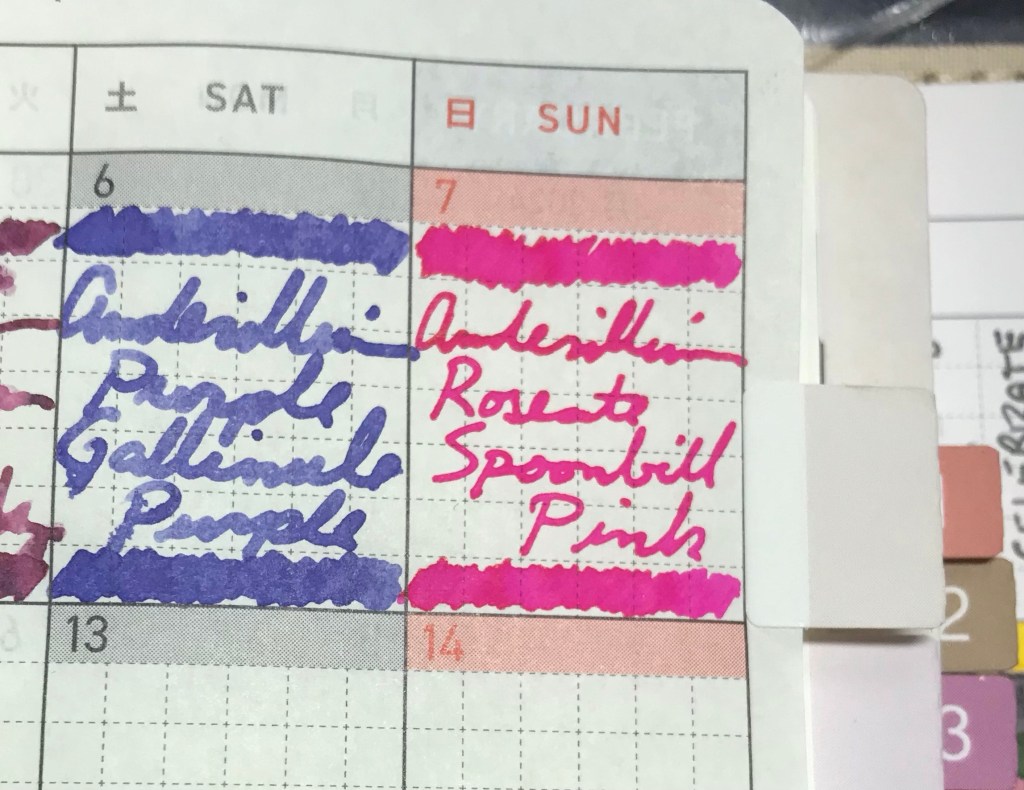 土 SAT
日 SUN
6
7
Anderillium
Purple
Gallinule
Purple
Anderillium
Roseate
Spoonbill
Pink
13
14
2
3